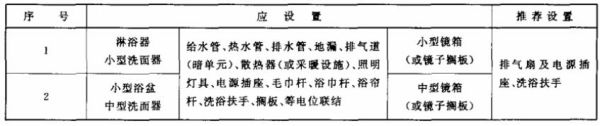 序 号 应 设 置 推荐设置
1
淋浴器
小型洗面器
给水管、热水管、排水管、地漏、排气道
(暗单元)、散热器(或采暖设施)、照明
灯具、电源插座、毛巾杆、浴巾杆、浴帘
杆、洗浴扶手、搁板、等电位联结
小型镜箱
(或镜子搁板)
排气扇及电源插
座、洗浴扶手
2
小型浴盆
中型洗面器
中型镜箱
(或镜子搁板)